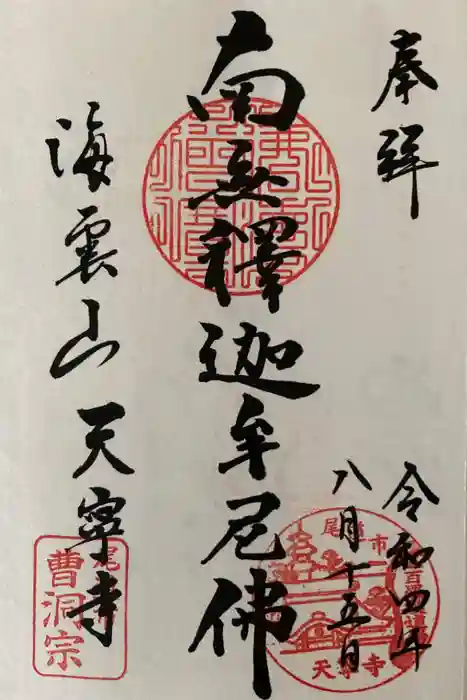 奉拝
令和四年
八月十五日
南無釋迦牟尼佛
海雲山 天寧寺
曹洞宗
尾
市
天寧寺